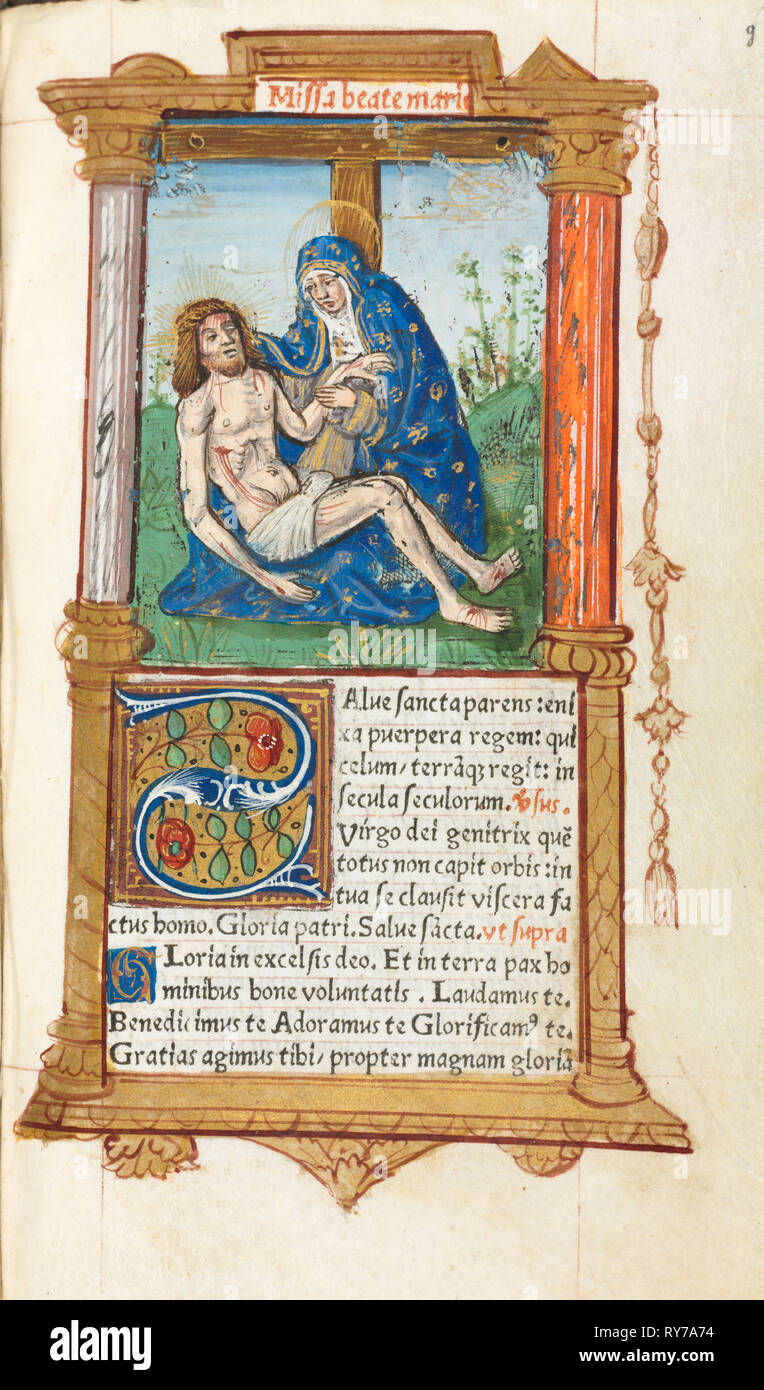 9
Missa beate marie
Alue sancta parens : eni
xa puerpera regem: qui
celum/ terrãqꝫ regit: in
secula seculorum. v̾sus.
Virgo dei genitrix quẽ
totus non capit orbis : in
tua se clausit viscera fa
ctus homo. Gloria patri. Salue sãcta. vt supra
GLoria in excelsis deo. Et in terra pax ho
minibus bone voluntatis . Laudamus te.
Benedicimus te Adoramus te Glorificamꝰ te.
Gratias agimus tibi/ propter magnam gloriã
alamy
a
a
alamy
a
a
alamy
Image ID: RY7A74
www.alamy.com